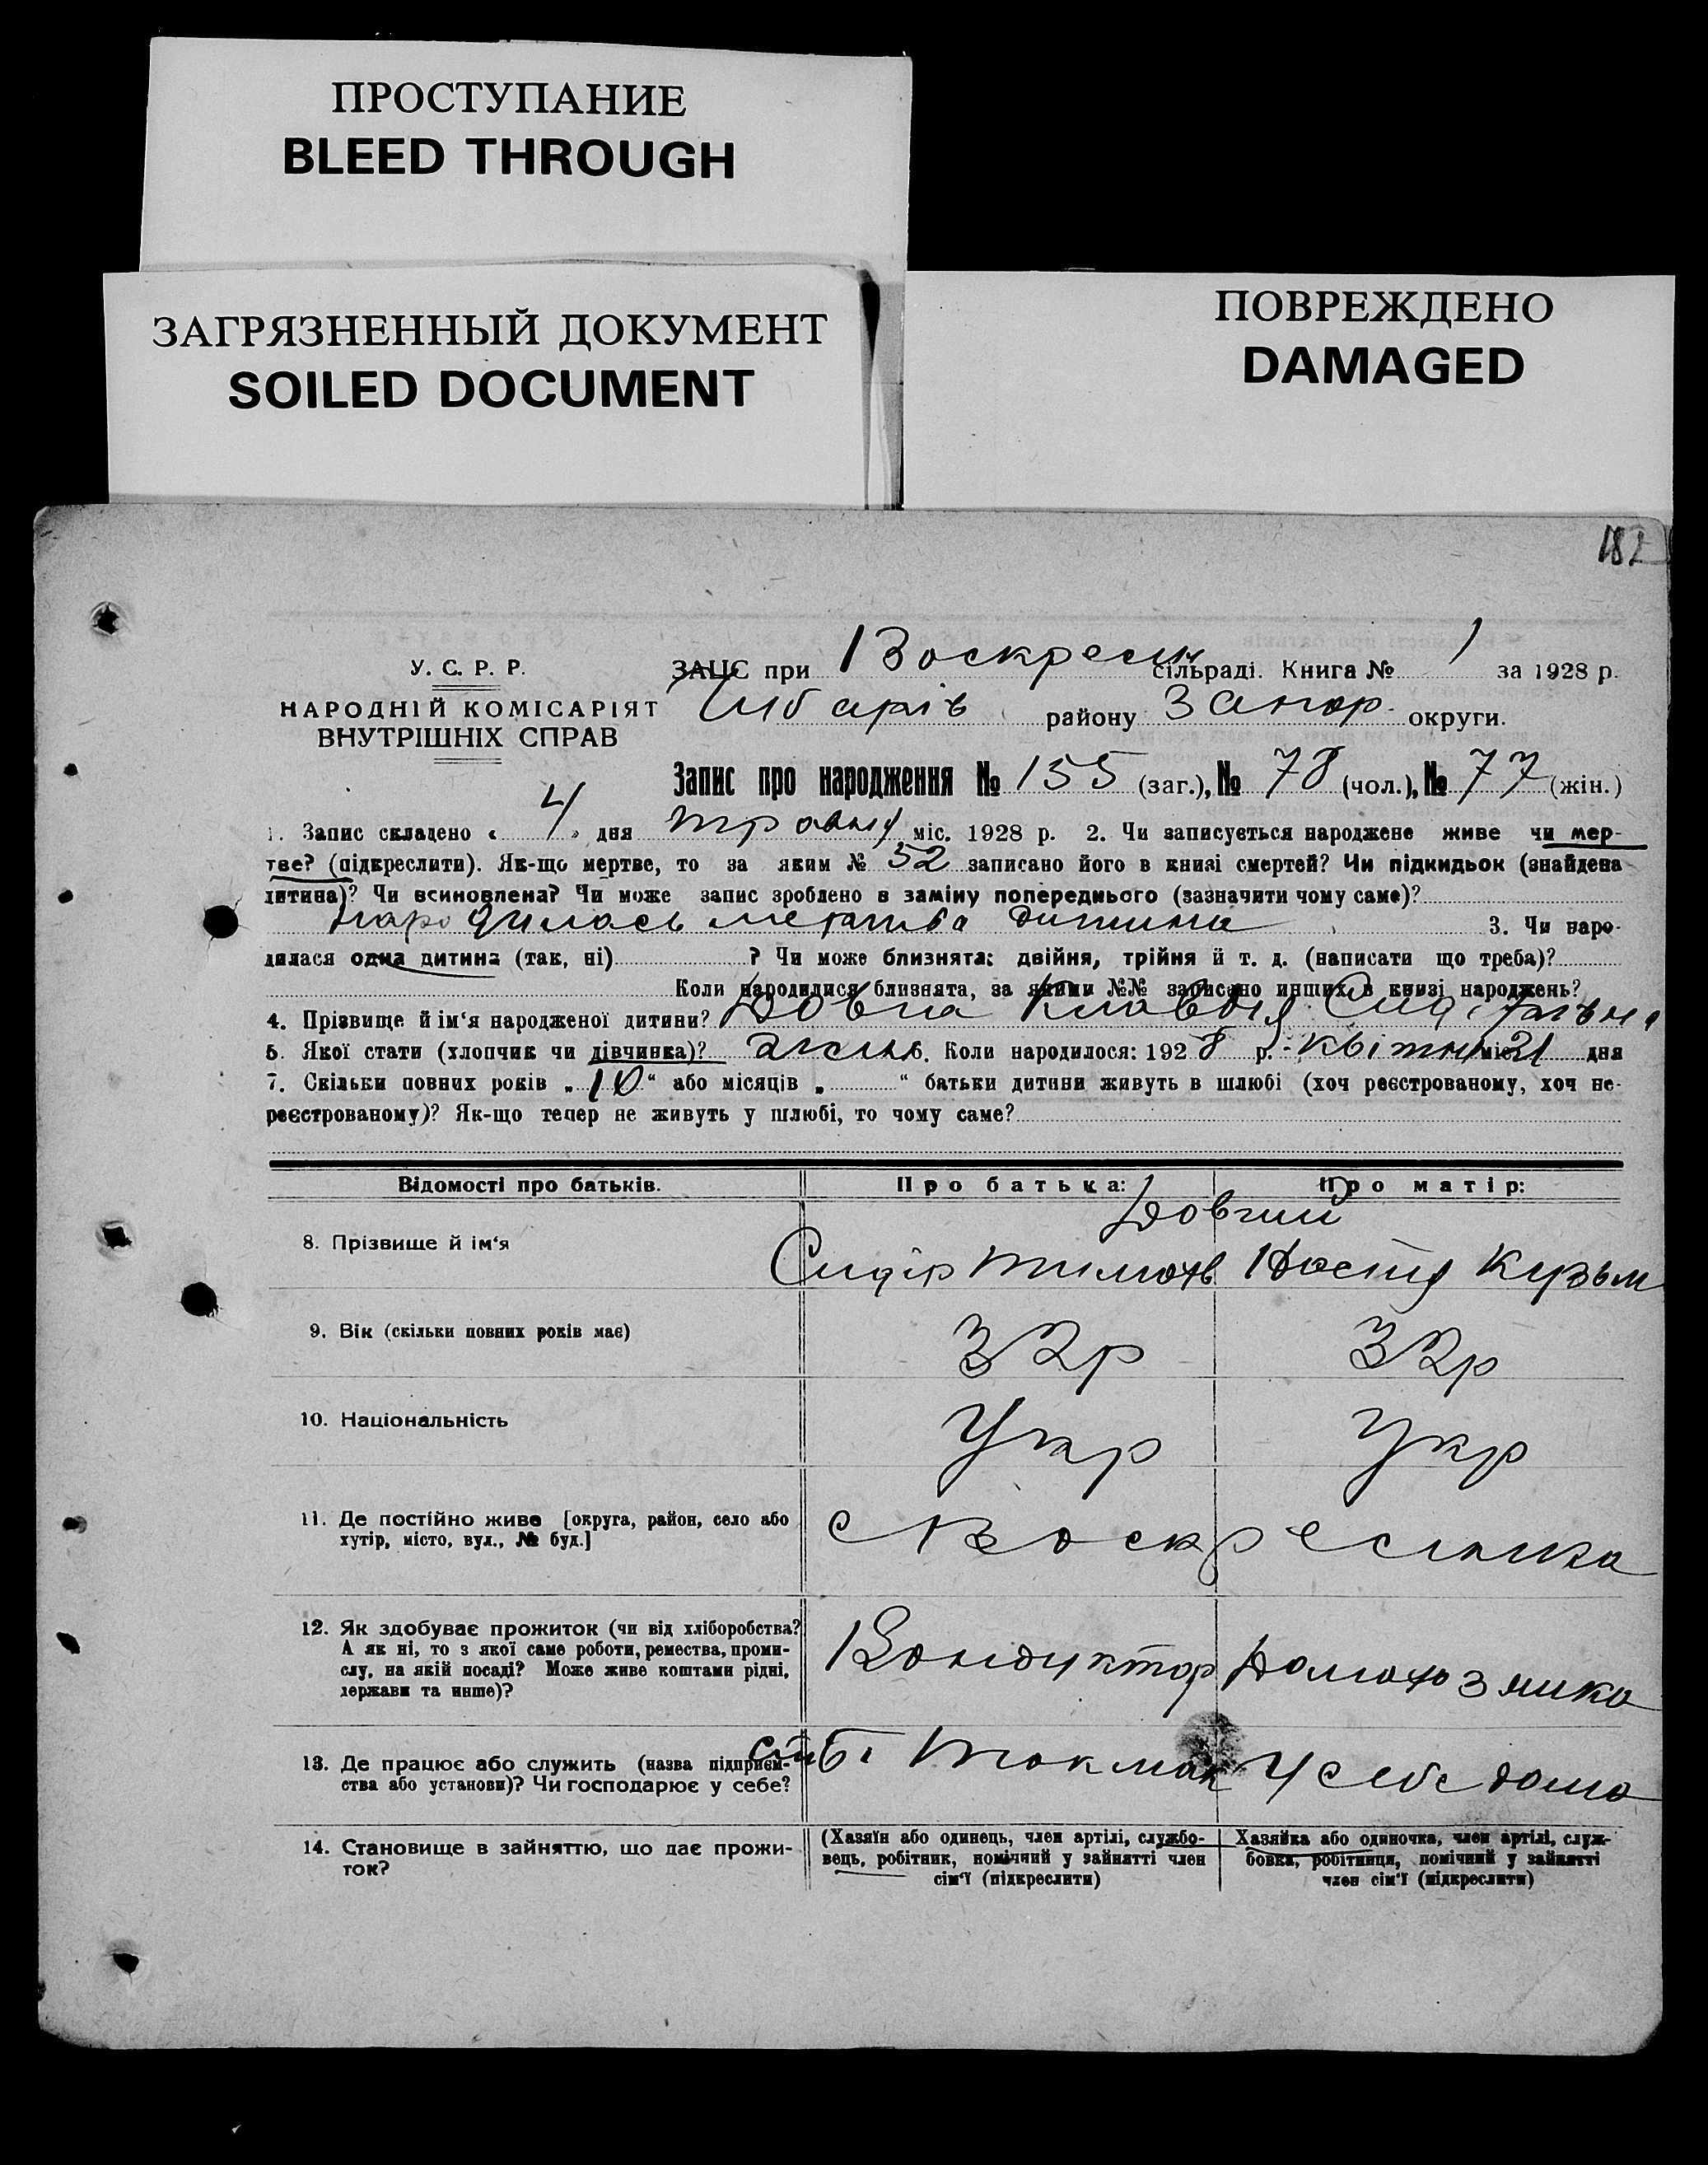 ПРОСТУПАНИЕ
BLEED THROUGH
ЗАГРЯЗНЕННЫЙ ДОКУМЕНТ
SOILED DOCUMENT
ПОВРЕЖДЕНО
DAMAGED
182
У. С. Р. Р.
НАРОДНІЙ КОМІСАРІЯТ
ВНУТРІШНІХ СПРАВ
ЗАЦС при Воскресен сільраді. Книга № 1 за 1928 р.
району Запор. округи.
Запис про народження № 155 (заг.), № 78 (чол.), № 77 (жін.)
1. Запис складено « 4 » дня травня міс. 1928 р. 2. Чи записується народжене живе чи мер-
тве? (підкреслити). Як-що мертве, то за яким № 52 записано його в книзі смертей? Чи підкидьок (знайдена
дитина)? Чи всиновлена? Чи може запис зроблено в заміну попереднього (зазначити чому саме)?
народилась мертва дитина 3. Чи наро-
дилася одна дитина (так, ні) ? Чи може близнята: двійня, трійня й т. д. (написати що треба)?
Коли народилися близнята, за якими №№ записано инших в книзі народжень?
4. Прізвище й ім‘я народженої дитини? Довга Клавдія Сидірівна
5. Якої стати (хлопчик чи дівчинка)? жін 6. Коли народилося: 1928 р. квітня міс. 21 дня
7. Скільки повних років „ 10 “ або місяців „ “ батьки дитини живуть в шлюбі (хоч реєстрованому, хоч не-
реєстрованому)? Як-що тепер не живуть у шлюбі, то чому саме?
Відомості про батьків. Про батька: Про матір:
Довгий
8. Прізвище й ім‘я Сидір Тимофів Настя Кузьм
9. Вік (скільки повних років має) 32р 32р
10. Національність Укр Укр
11. Де постійно живе [округа, район, село або
хутір, місто, вул., № буд.] с Воскресенка
12. Як здобуває прожиток (чи від хліборобства?
А як ні, то з якої саме роботи, ремества, проми-
слу, на якій посаді? Може живе коштами рідні,
держави та инше)? Кондуктор Домохозяика
13. Де працює або служить (назва підприєм-
ства або установи)? Чи господарює у себе? Токмак У себе дома
14. Становище в зайняттю, що дає прожи-
ток?
(Хазяїн або одинець, член артілі, службо-
вець, робітник, помічний у зайнятті член
сім‘ї (підкреслити)
Хазяйка або одиночка, член артілі, служ-
бовка, робітниця, помічний у зайнятті
член сім‘ї (підкреслити)